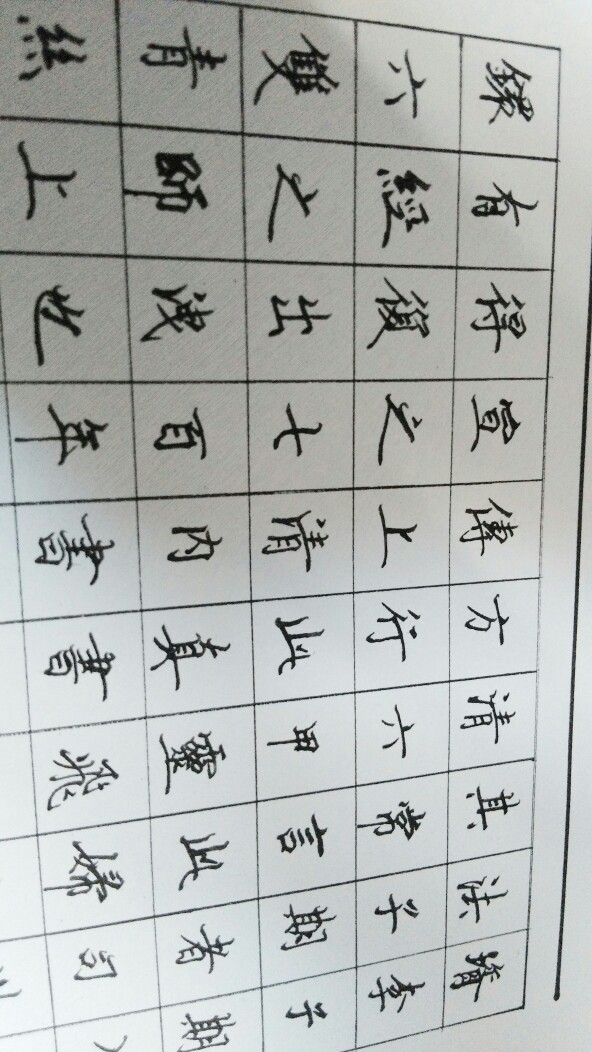 鐶有得宣傳方清其法
六經復之上行六常子李
雙之出七清此甲言期子
青師洩百内真靈此者期
絲上也年書書飛婦司